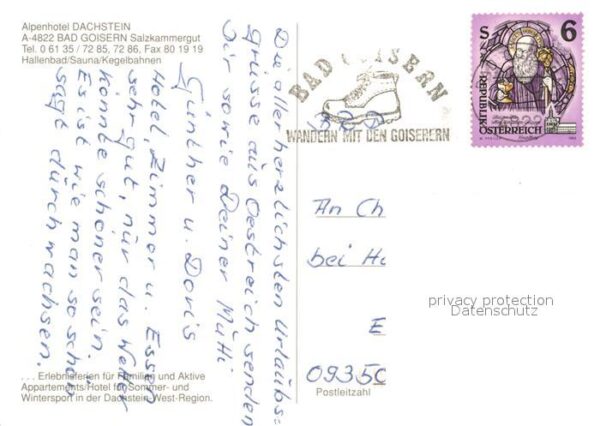 Alpenhotel DACHSTEIN
A-4822 BAD GOISERN Salzkammergut
Tel. 0 61 35 / 72 85, 72 86, Fax 80 19 19
Hallenbad/Sauna/Kegelbahnen
Die allerherzlichsten Urlaubs=
grüsse aus Oestreich senden
Dir sowie Deiner Mutti
Günther u. Doris
Hotel, Zimmer u. Essen
sehr gut, nur das Wetter
könnte schöner sein.
Es ist wie man so schön
sagt durchwachsen.
. . . Erlebnisferien für Familien und Aktive
Appartements/Hotel für Sommer- und
Wintersport in der Dachstein West-Region.
BAD GOISERN
WANDERN MIT DEN GOISERERN
S 6
REPUBLIK
ÖSTERREICH
An Ch
bei H
E
0935
Postleitzahl
privacy protection
Datenschutz